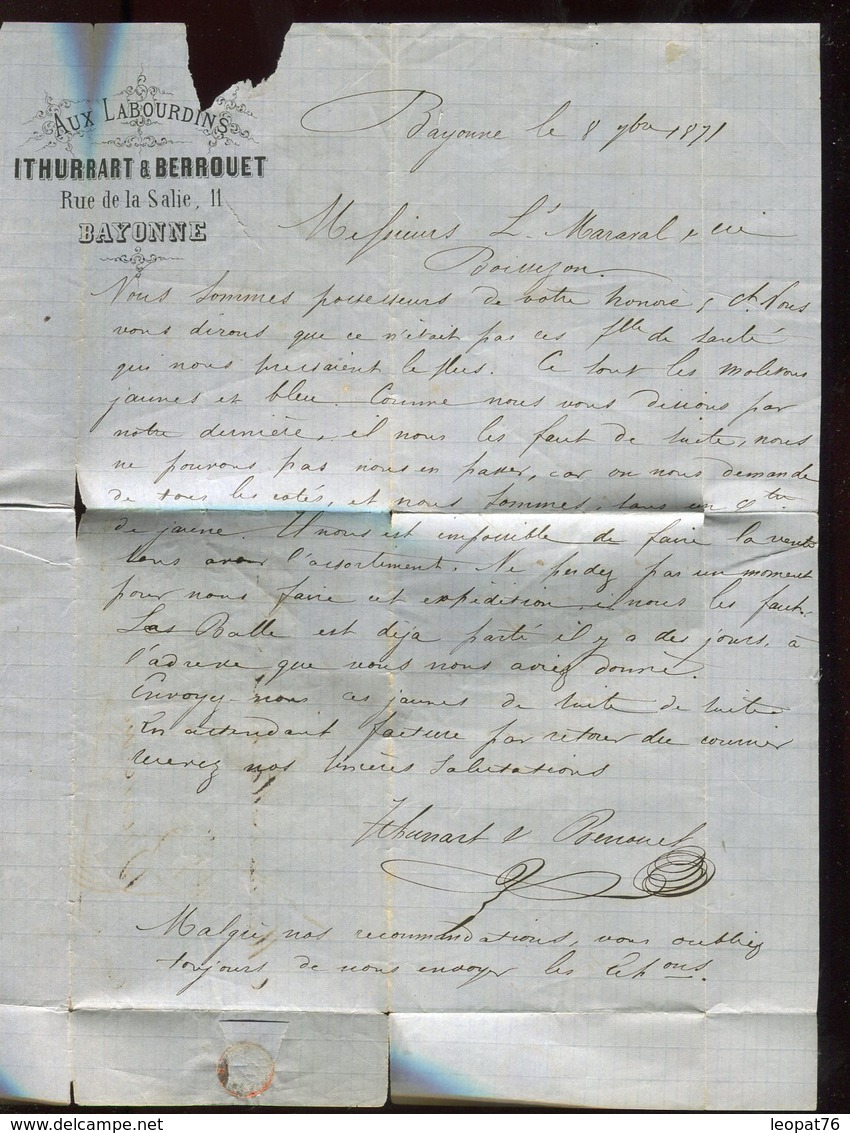 AUX LABOURDINS
ITHURRART & BERROUET
Rue de la Salie, 11
BAYONNE
Bayonne le 8 7bre 1871
Messieurs Ls Maraval & cie
Boissezon
Nous sommes possesseurs de votre honoré 5 ct. Nous
vous dirons que ce n'était pas ces flles de santé
qui nous pressaient le plus. Ce sont les moletons
jaunes et bleu. Comme nous vous disions par
notre dernière, il nous les faut de suite, nous
ne pouvons pas nous en passer, car on nous demande
de tous les cotés, et nous sommes, sans un
de jaune. Il nous est impossible de faire la vente
sans avoir l'assortiment. Ne perdez pas un moment
pour nous faire cet expédition, il nous les faut.
Las Balle est deja parté il y a des jours, à
l'adresse que vous nous aviez donné.
Envoyez-nous ces jaunes de suite de suite
En attendant facture par retour du courrier
recevez nos sincères salutations
Ithurrart & Berrouet
Malgré nos recommandations, vous oubliez
toujours de nous envoyer les Echons.
leopat76